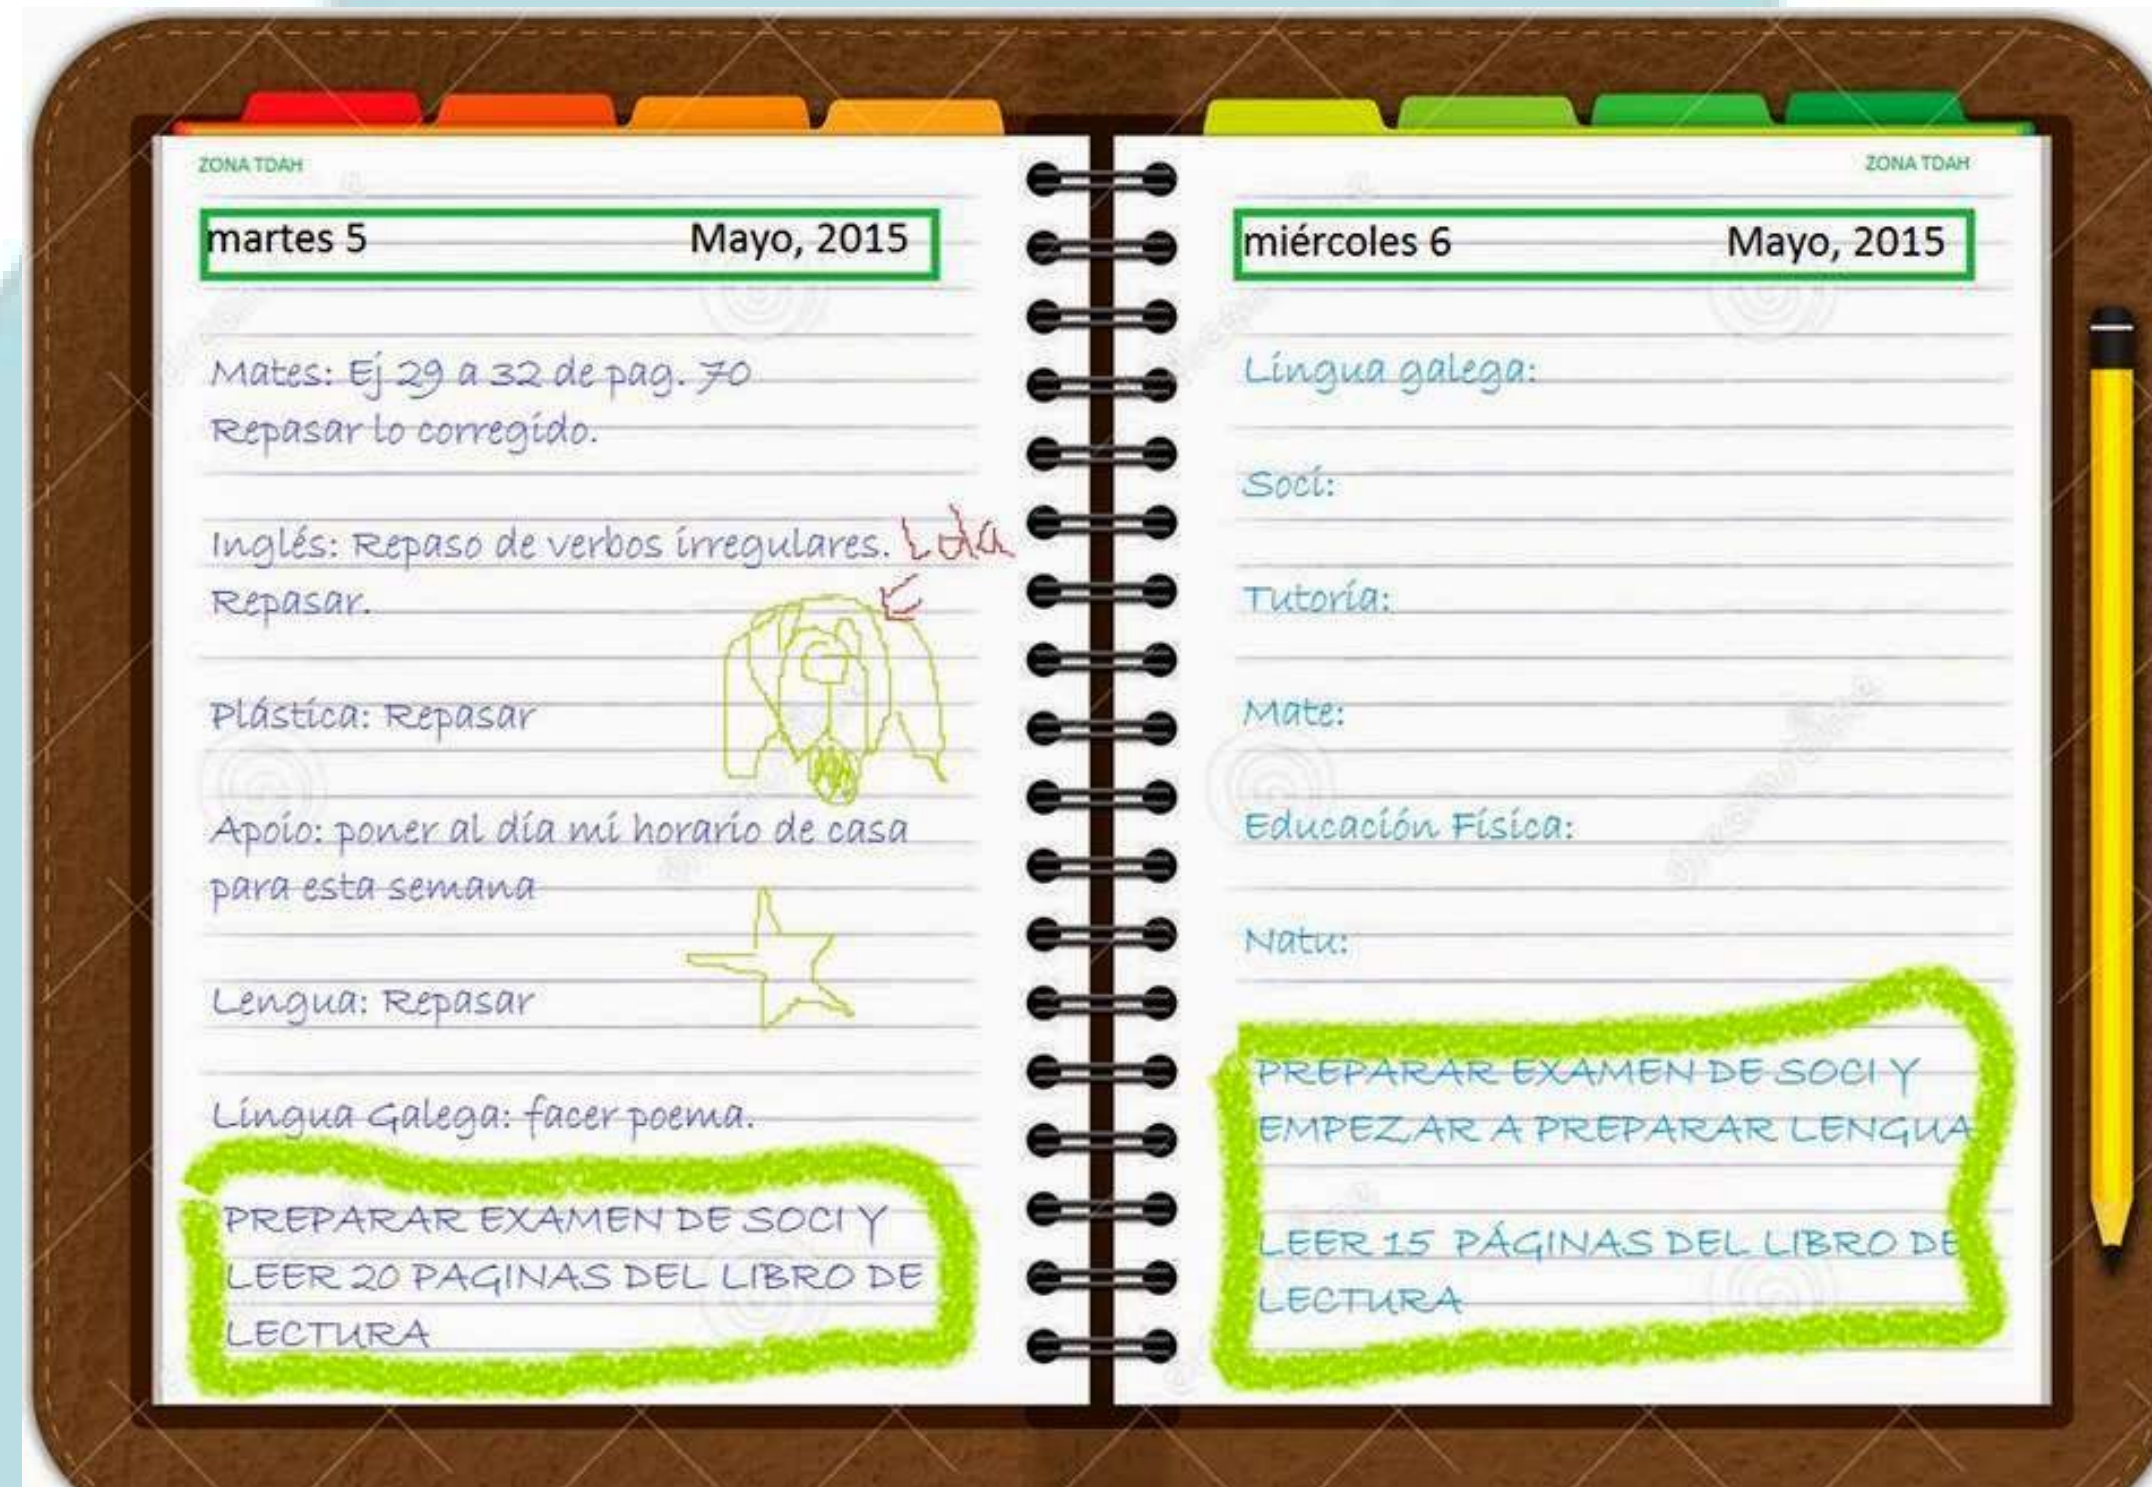 ZONA TDAH
martes 5 Mayo, 2015
Mates: Ej 29 a 32 de pag. 70
Repasar lo corregido.
Inglés: Repaso de verbos irregulares.
Repasar.
Plástica: Repasar
Apoio: poner al día mi horario de casa
para esta semana
Lengua: Repasar
Lingua Galega: facer poema.
PREPARAR EXAMEN DE SOCI Y
LEER 20 PAGINAS DEL LIBRO DE
LECTURA
ZONA TDAH
miércoles 6 Mayo, 2015
Lingua galega:
Soci:
Tutoría:
Mate:
Educación Física:
Natu:
PREPARAR EXAMEN DE SOCI Y
EMPEZAR A PREPARAR LENGUA
LEER 15 PÁGINAS DEL LIBRO DE
LECTURA